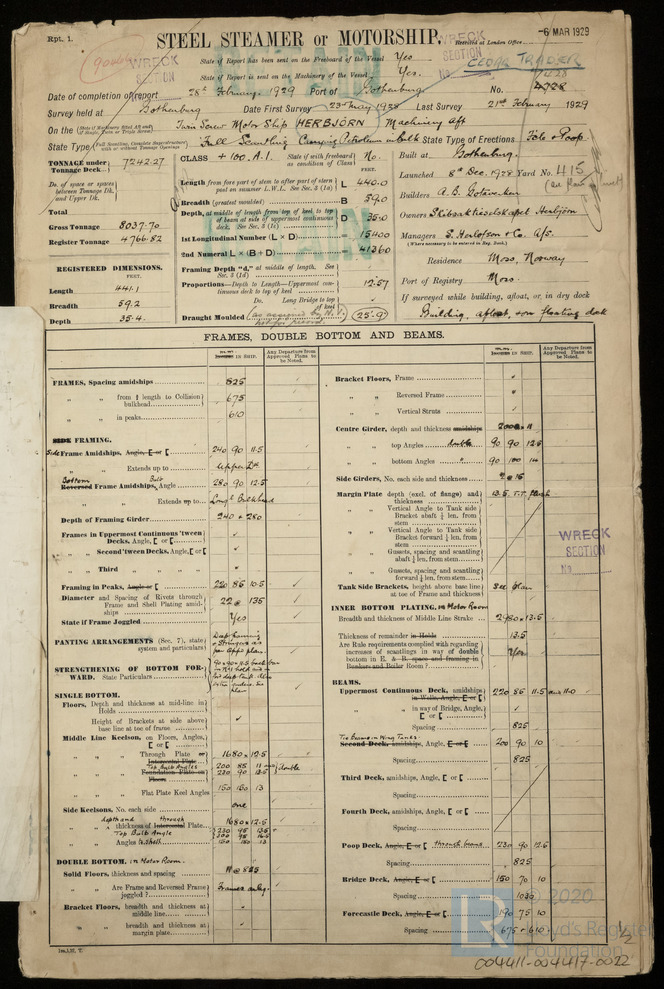 Rpt. 1.
STEEL STEAMER or MOTORSHIP.
Received at London Office
-6 MAR 1929
WRECK SECTION
WRECK SECTION
No.
CEDAR TRADER
State of Report has been sent on the Freeboard of the Vessel Yes
State of Report is sent on the Machinery of the Vessel Yes.
Date of completion of report 28th February, 1929 Port of Gothenburg No. 4728
Survey held at Gothenburg Date First Survey 23rd May 1928 Last Survey 21st February 1929
On the Twin Screw Motor Ship HERBJÖRN Machinery Aft
State Type Full Scantling Carrying Petroleum in bulk State Type of Erections Fcle & Poop
TONNAGE under Tonnage Deck 7242.27
Do. of space or spaces between Tonnage Dk. and Upper Dk.
Total
Gross Tonnage 8037.70
Register Tonnage 4766.82
REGISTERED DIMENSIONS.
FEET.
Length 441.1
Breadth 59.2
Depth 35.4
CLASS +100.A.1. State if with freeboard as condition of Class No.
Length from fore part of stem to after part of stern post on summer L.W.L. See Sec. 3 (1a) L 440.0
Breadth (greatest moulded) B 59.0
Depth, at middle of length from top of keel to top of beam at side of uppermost continuous deck. See Sec. 3 (1c) D 35.0
1st Longitudinal Number (L × D) 15400
2nd Numeral L × (B + D) 41360
Framing Depth "d," at middle of length. See Sec. 3 (1d)
Proportions—Depth to Length—Uppermost continuous deck to top of keel 12.57
Do. Long Bridge to top of keel
Draught Moulded (as assigned by N.V. not for record) 25.9
Built at Gothenburg.
Launched 8th Dec. 1928 Yard No. 415
Builders A.B. Götaverken
Owners Skibsaktieselskapet Herbjörn
Managers S. Herlofson & Co. A/S.
(Where necessary to be entered in Reg. Book.)
Residence Moss, Norway
Port of Registry Moss
If surveyed while building, afloat, or in dry dock
Building, afloat, & on floating dock
FRAMES, DOUBLE BOTTOM AND BEAMS.
IN SHIP.
Any Departure from Approved Plans to be Noted.
IN SHIP.
Any Departure from Approved Plans to be Noted.
FRAMES, Spacing amidships 825
" " from ⅕ length to Collision bulkhead 675
" " in peaks 610
SIDE FRAMING.
Side Frame Amidships, Angle, E or [ 240 90 11.5
" " Extends up to Upper Dk
Bottom Reversed Frame Amidships, Angle Bulb 280 90 12.5
" " Extends up to Longl Bulkhead
Depth of Framing Girder 240 & 280
Frames in Uppermost Continuous 'tween Decks, Angle, [ or [
" " Second 'tween Decks, Angle, [ or [
" " Third " " " "
Framing in Peaks, Angle or [ 220 85 10.5
Diameter and Spacing of Rivets through Frame and Shell Plating amidships 22 @ 135
State if Frame Joggled Yes
PANTING ARRANGEMENTS (Sec. 7), state system and particulars Deep framing & Stringers as per Appd plan
STRENGTHENING OF BOTTOM FORWARD. State Particulars
SINGLE BOTTOM.
Floors, Depth and thickness at mid-line in Holds
Height of Brackets at side above base line at toe of frame
Middle Line Keelson, on Floors, Angles, [ or [
" " Through Plate or Intercostal Plate 1680 × 12.5
" " Top Bulb Angles
" " Foundation Plate on Floors
" " Flat Plate Keel Angles 150 150 13
Side Keelsons, No. each side one
" " depth and thickness of through Intercostal Plate 1680 × 12.5
" " Top Bulb Angle
" " Angles to Shell 150 150 13
DOUBLE BOTTOM, in Motor Room.
Solid Floors, thickness and spacing 11 @ 825
" " Are Frame and Reversed Frame joggled? Frames only
Bracket Floors, breadth and thickness at middle line
" " breadth and thickness at margin plate
Bracket Floors, Frame
" " Reversed Frame
" " Vertical Struts
Centre Girder, depth and thickness amidships
" " top Angles double 90 90 12.5
" " bottom Angles " 90 100 14
Side Girders, No. each side and thickness
Margin Plate depth (excl. of flange) and thickness 13.5 T.T. flush
" " Vertical Angle to Tank side Bracket abaft ¼ len. from stem
" " Vertical Angle to Tank side Bracket forward ¼ len. from stem
" " Gussets, spacing and scantling abaft ¼ len. from stem
" " Gussets, spacing and scantling forward ¼ len. from stem
Tank Side Brackets, height above base line at toe of Frame and thickness See Plan
INNER BOTTOM PLATING, in Motor Room
Breadth and thickness of Middle Line Strake 2980 × 13.5
Thickness of remainder in Holds 13.5
Are Rule requirements complied with regarding increases of scantlings in way of double bottom in E. & B. space and framing in Bunkers and Boiler Room? Yes
BEAMS.
Uppermost Continuous Deck, amidships in Wells, Angle, E or [ 220 85 11.5 and 11.0
" " in way of Bridge, Angle, [ or [
Spacing 825
Top Beams in Wing Tanks
Second Deck, amidships, Angle, E or [ 200 90 10
Spacing 825
Third Deck, amidships, Angle, [ or [
Spacing
Fourth Deck, amidships, Angle, [ or [
Spacing
Poop Deck, Angle, E or [ 230 90 12.5
Spacing 825
Bridge Deck, Angle, E or [ 150 70 10
Spacing
Forecastle Deck, Angle, E or [ 190 75 10
Spacing 675 & 610
WRECK SECTION
No.
© 2020
LR
Lloyd's Register Foundation
1/2
004411-004417-0022